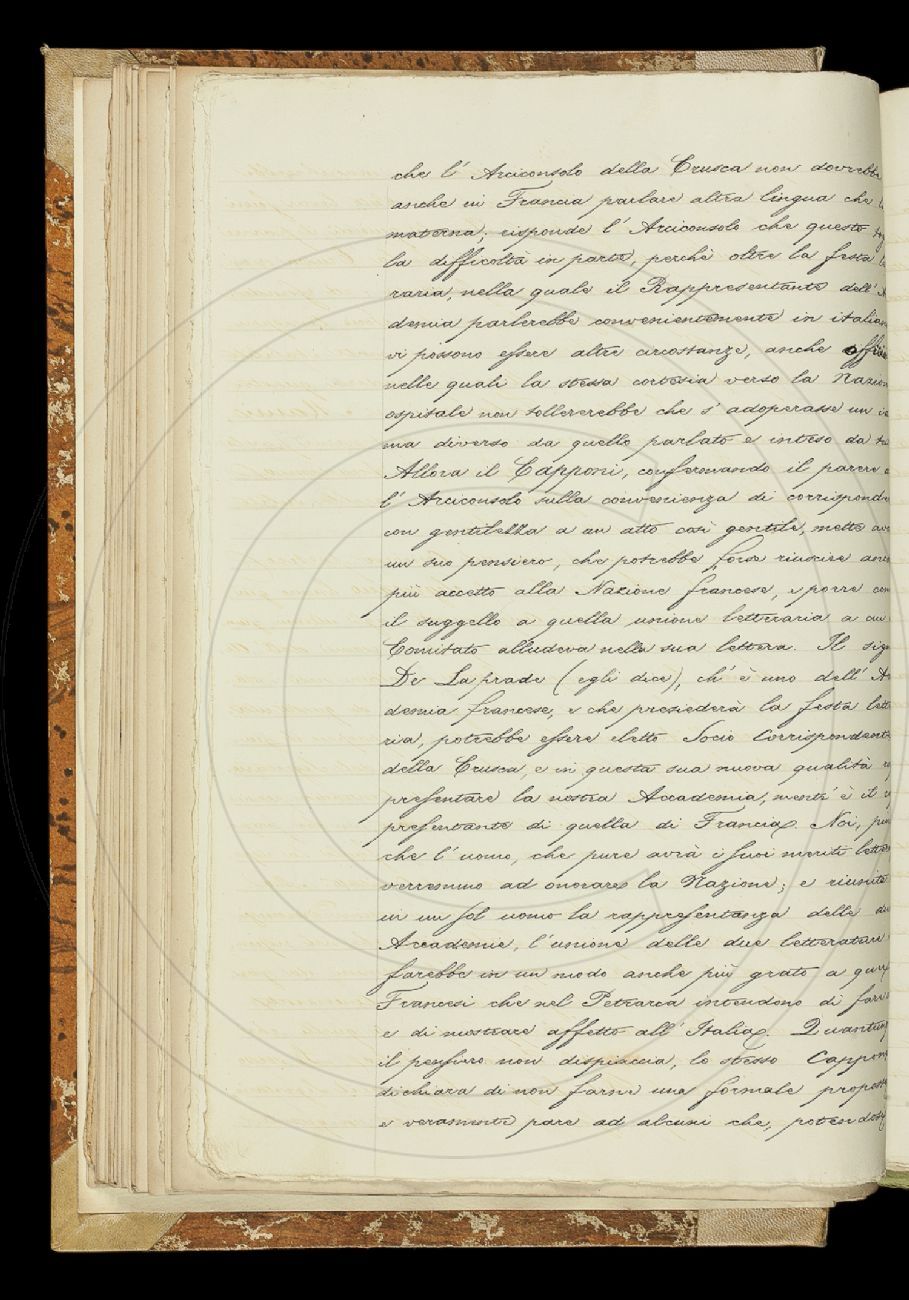 che l' Arciconsolo della Crusca non dovrebbe
anche in Francia parlare altra lingua che
materna; risponde l' Arciconsolo che questo
la difficoltà in parte, perchè oltre la festa
raria, nella quale il Rappresentante dell' A
demia parlerebbe convenientemente in italian
vi possono essere altre circostanze, anche offici
nelle quali la stessa cortesia verso la Nazion
ospitale non tollererebbe che s' adoperasse un
ma diverso da quello parlato e inteso da tu
Allora il Capponi, confermando il parere
l' Arciconsolo sulla convenienza di corrisponde
con gentilezza a un atto così gentile, mette ava
un suo pensiero, che potrebbe forse riuscire anco
più accetto alla Nazione francese, e porre com
il suggello a quella unione letteraria a cui
Comitato alludeva nella sua lettera. Il sig
De Laprade (egli dice), ch' è uno dell' A
demia francese, e che presiederà la festa lette
ria, potrebbe essere eletto Socio Corrispondente
della Crusca, e in questa sua nuova qualità
presentare la nostra Accademia, mentr' è il
presentante di quella di Francia. Noi, più
che l' uomo, che pure avrà i suoi meriti letter
verremmo ad onorare la Nazione; e riunite
in un sol uomo la rappresentanza delle du
Accademie, l' unione delle due letterature
farebbe in un modo anche più grato a que
Francesi che nel Petrarca intendono di far
e di mostrare affetto all' Italia. Quantunq
il pensiero non dispiaccia, lo stesso Capponi
dichiara di non farne una formale propost
e veramente pare ad alcuni che, potendosi